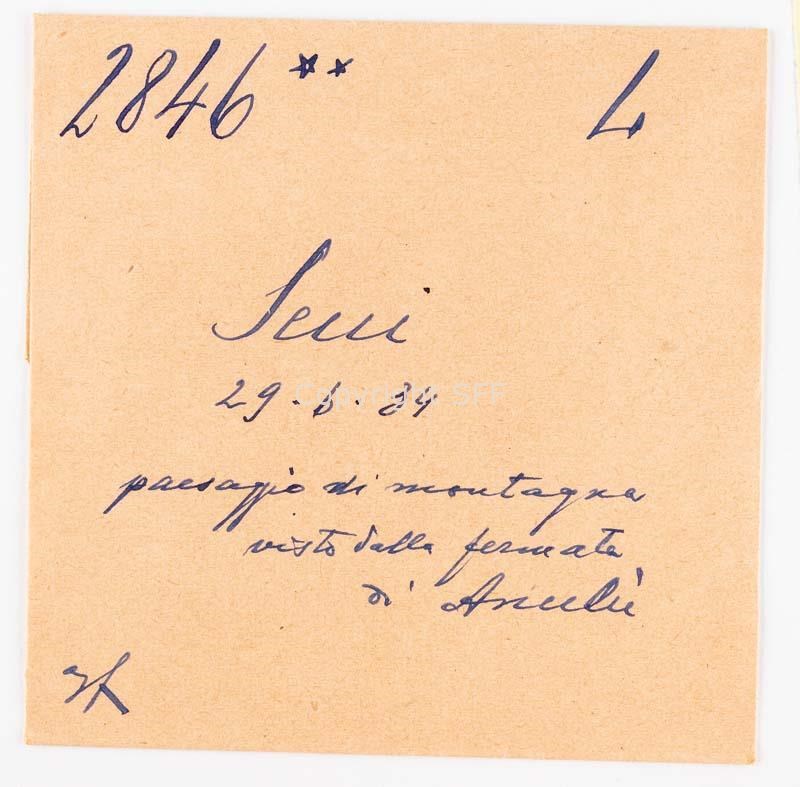 2846 ** L
Seui
29.6.84
paesaggio di montagna
visto dalla fermata
di
Copyright SFF